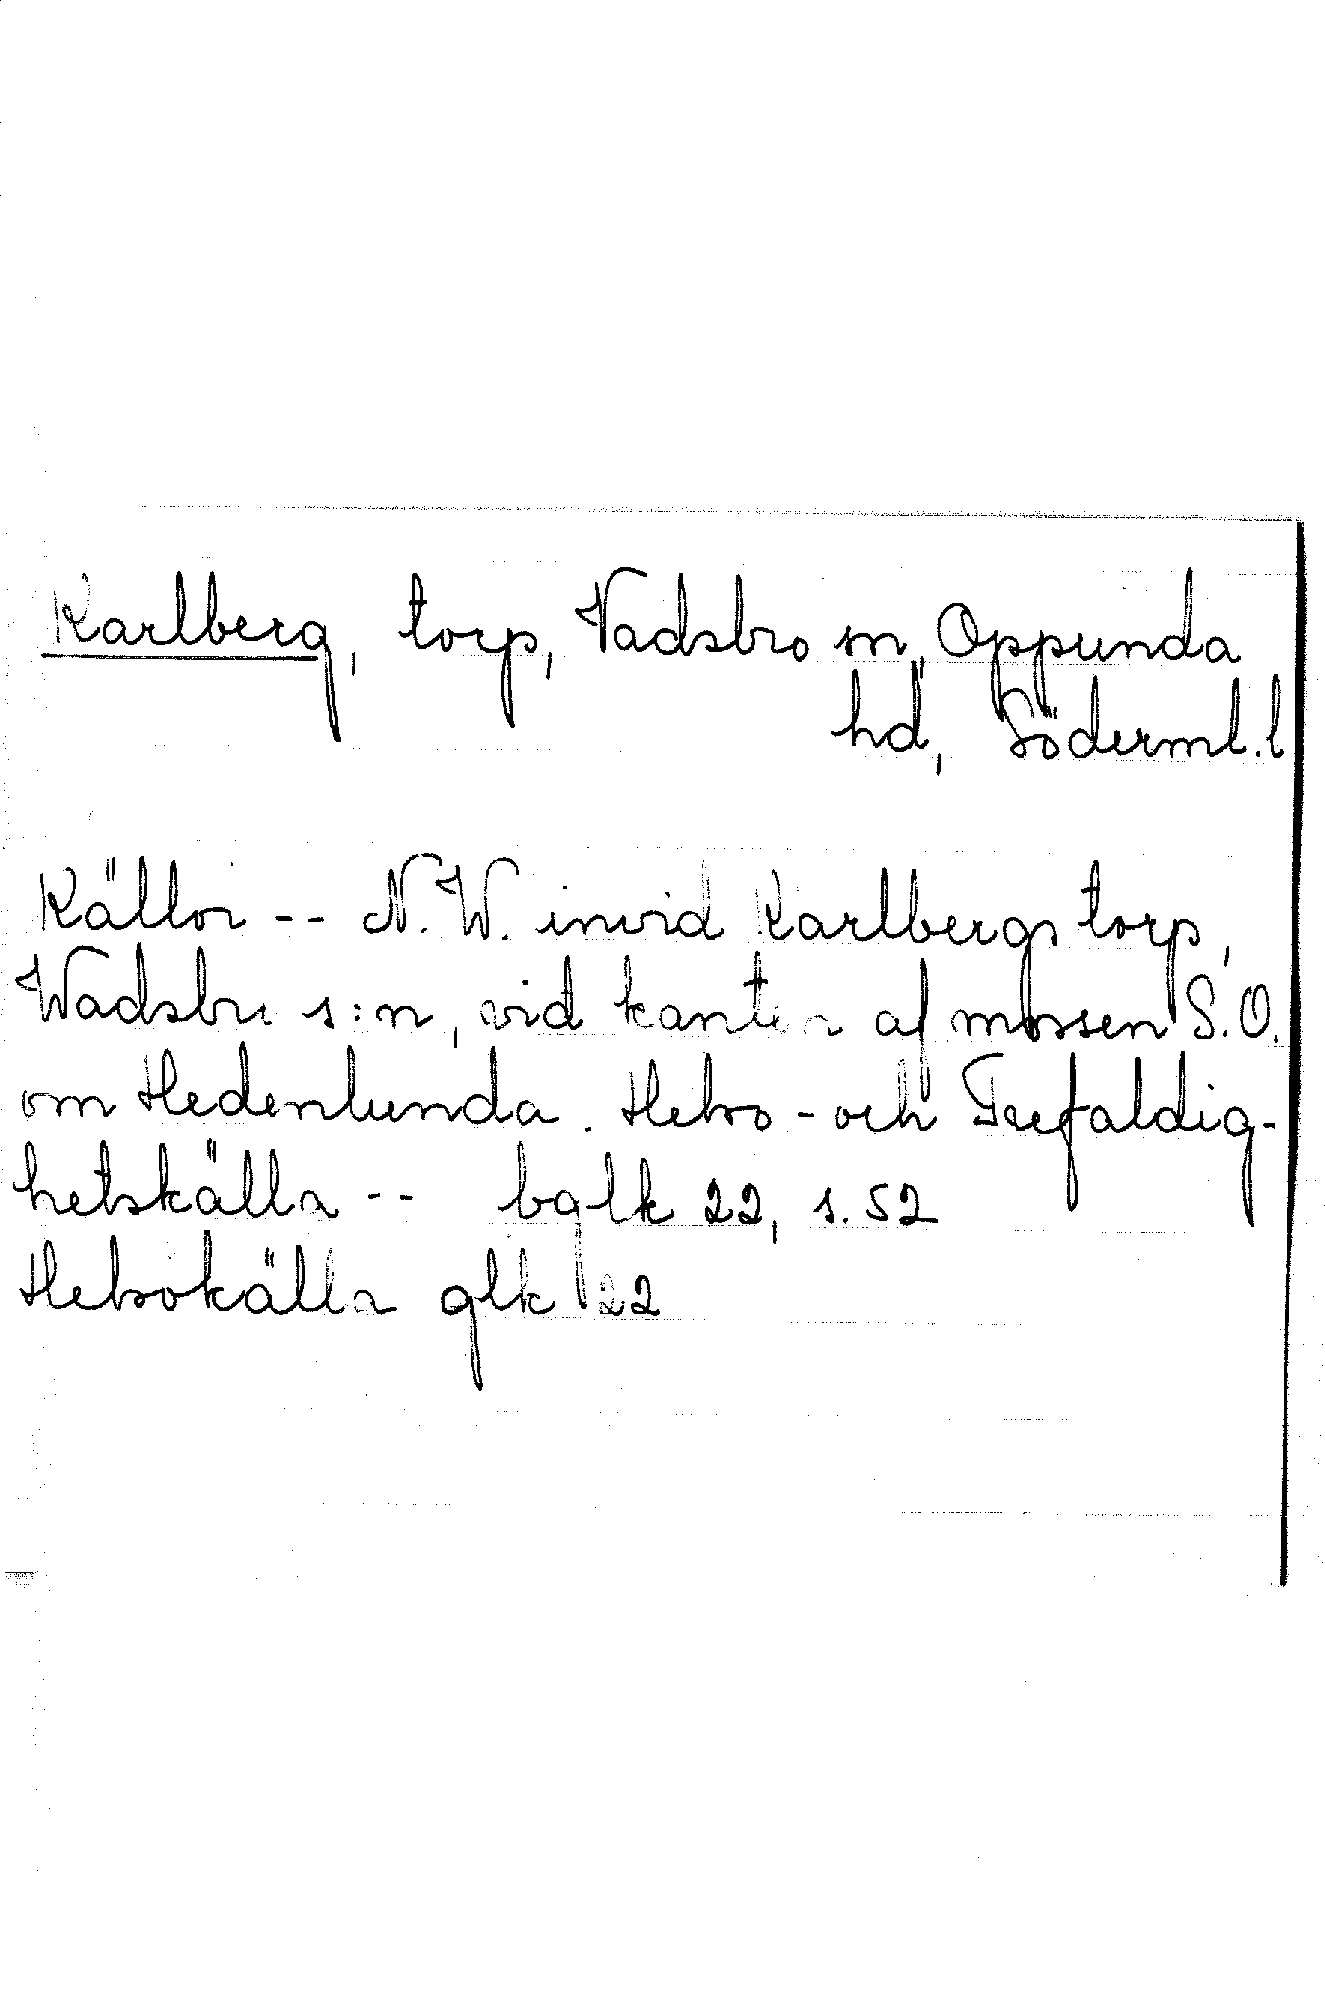 Karlberg, torp, Vadsbro sn, Oppunda
hd, Söderml. l
Källor -- N.W. invid Karlbergs torp,
Wadsbro s:n, vid kanten af mossen S.O.
om Hedenlunda. Helso- och Trefaldig-
hetskälla -- bglk 22, s. 52
Helsokälla glk 22